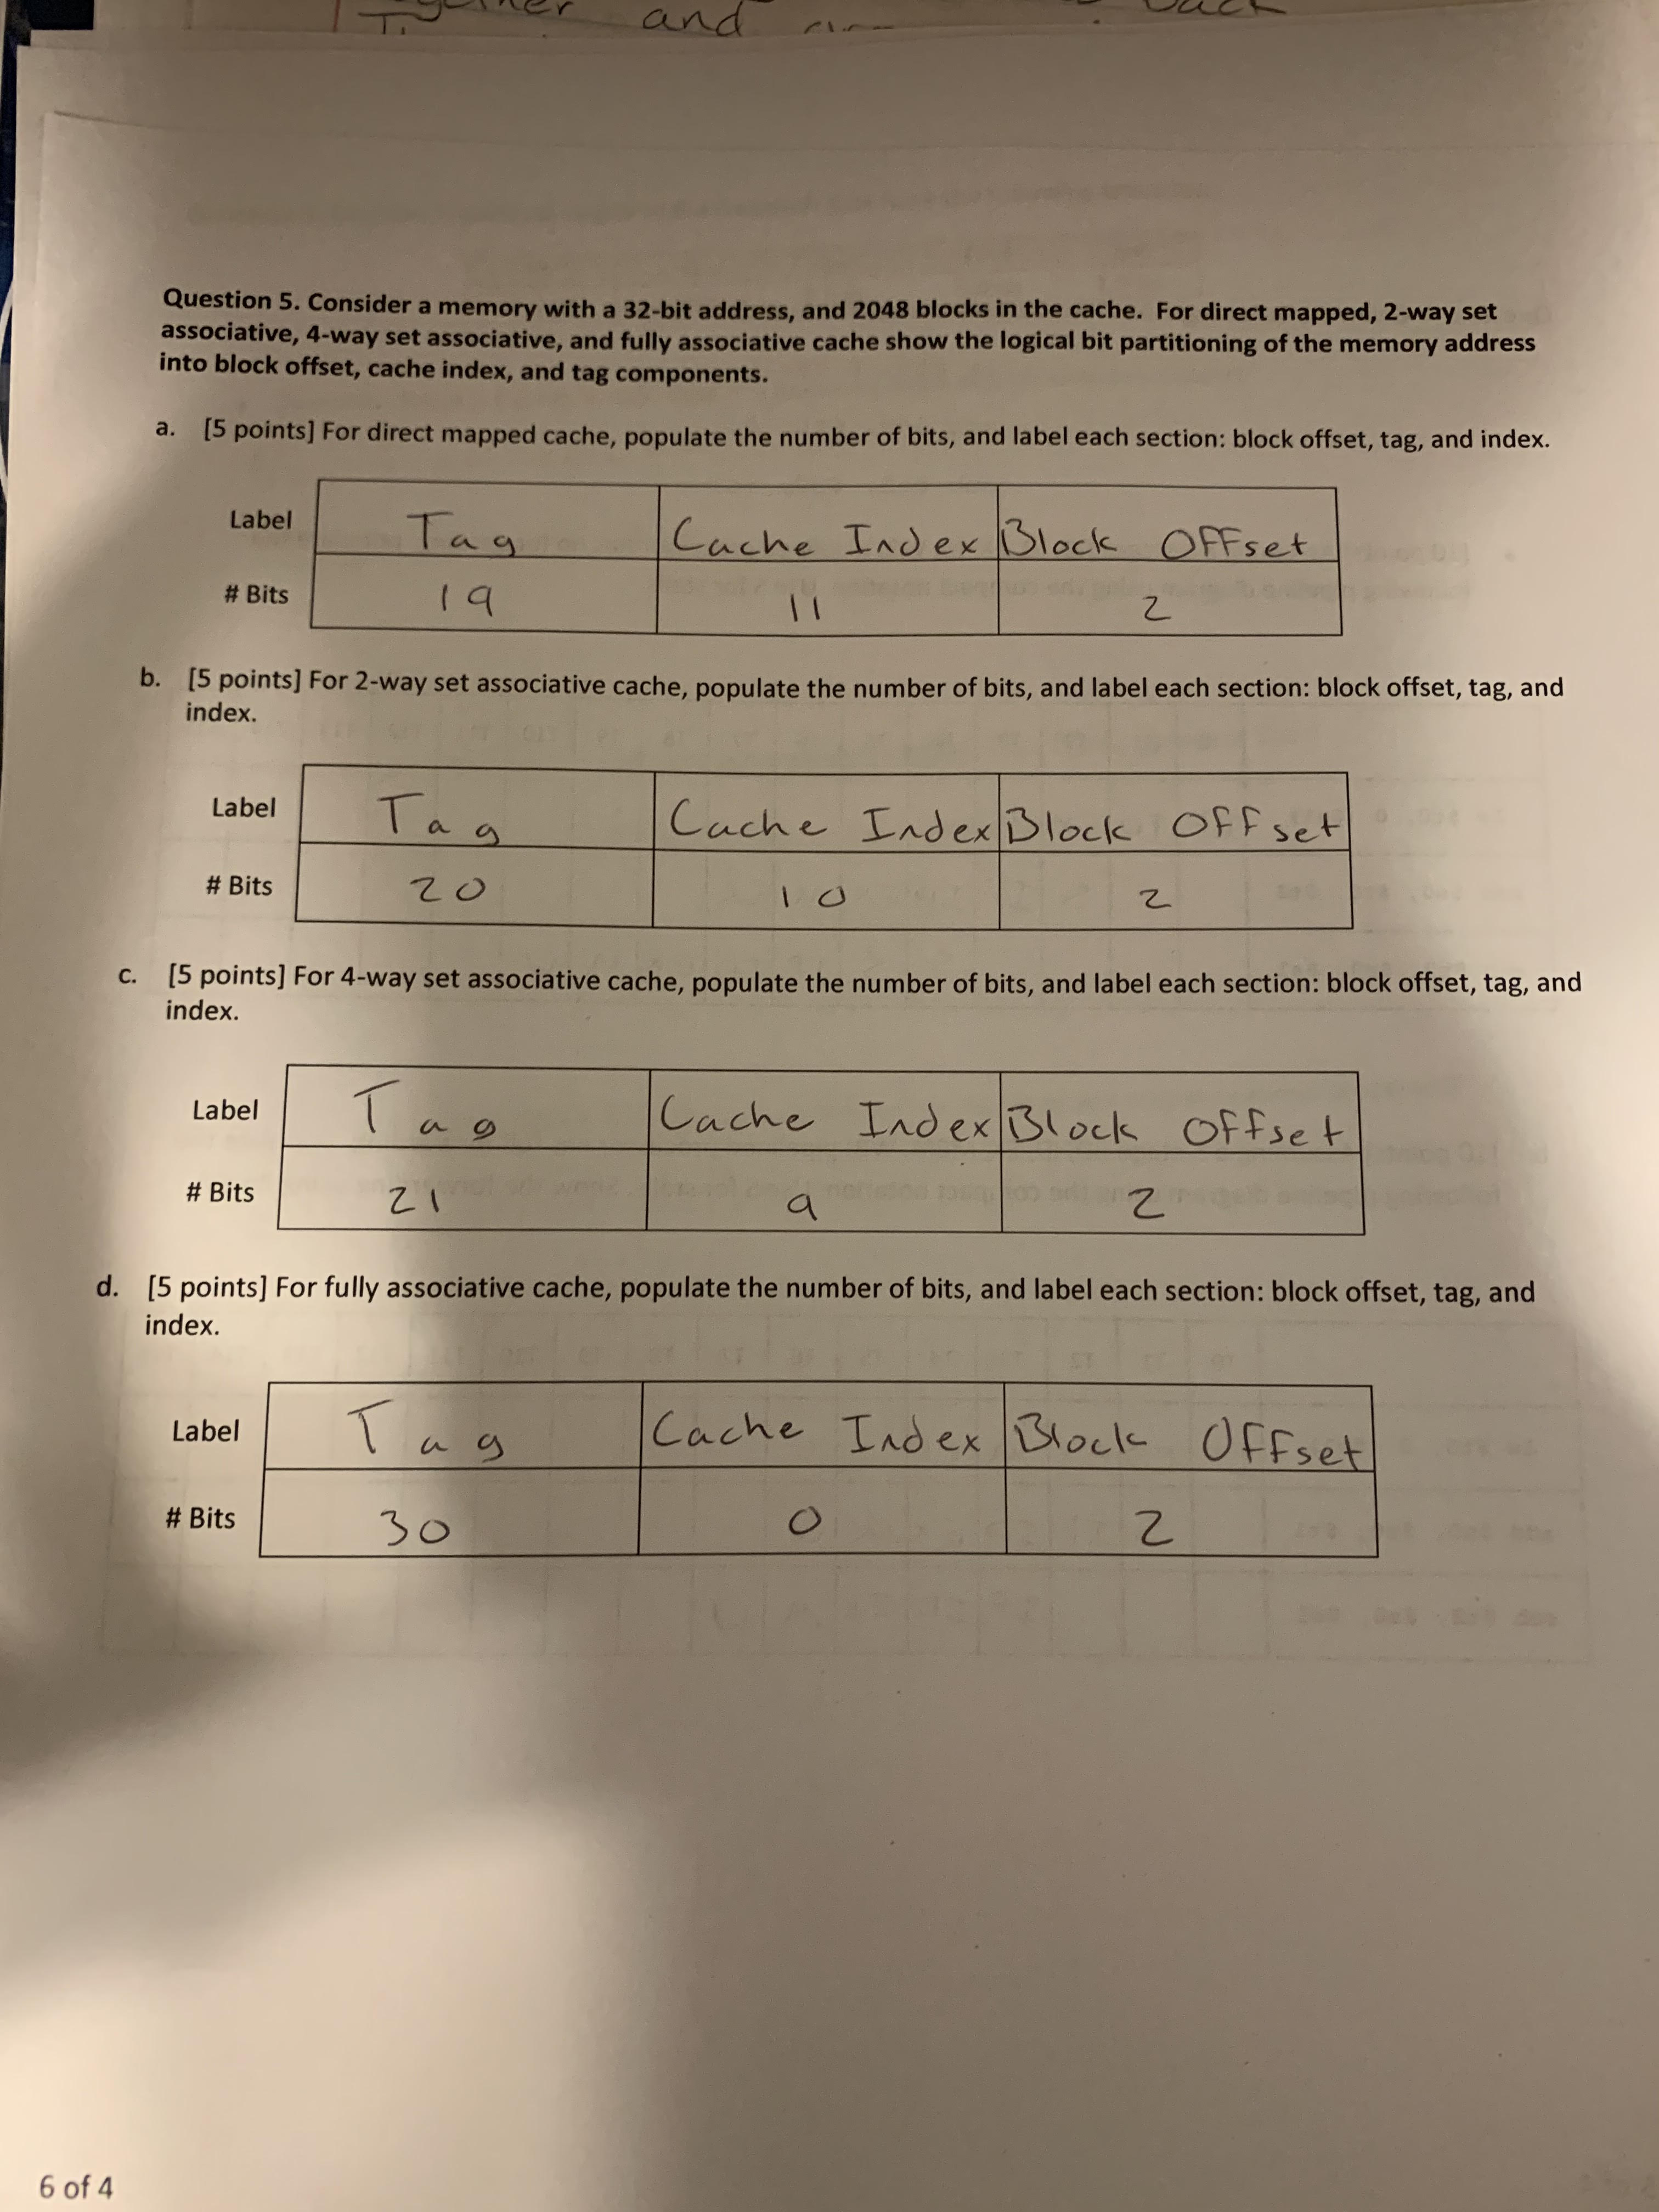 and
back
Question 5. Consider a memory with a 32-bit address, and 2048 blocks in the cache. For direct mapped, 2-way set
associative, 4-way set associative, and fully associative cache show the logical bit partitioning of the memory address
into block offset, cache index, and tag components.
a. [5 points] For direct mapped cache, populate the number of bits, and label each section: block offset, tag, and index.
Label Tag Cache Index Block Offset
# Bits 19 11 2
b. [5 points] For 2-way set associative cache, populate the number of bits, and label each section: block offset, tag, and
index.
Label Tag Cache Index Block Offset
# Bits 20 10 2
c. [5 points] For 4-way set associative cache, populate the number of bits, and label each section: block offset, tag, and
index.
Label Tag Cache Index Block Offset
# Bits 21 9 2
d. [5 points] For fully associative cache, populate the number of bits, and label each section: block offset, tag, and
index.
Label Tag Cache Index Block Offset
# Bits 30 0 2
6 of 4